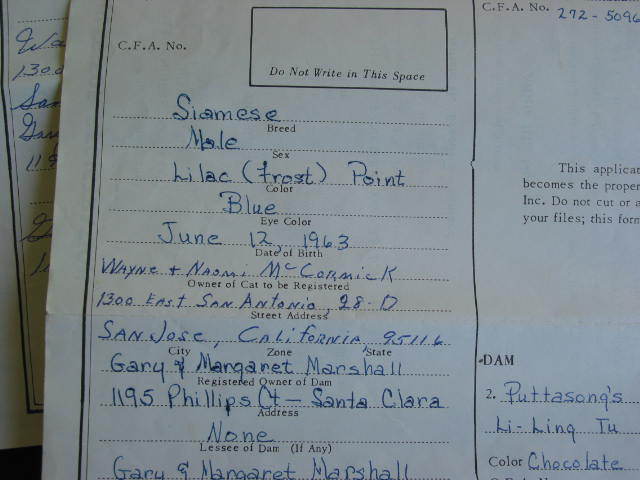 C.F.A. No.
C.F.A. No. 272-5096
Do Not Write in This Space
Siamese
Breed
Male
Sex
Lilac (frost) Point
Color
Blue
Eye Color
June 12, 1963
Date of Birth
Wayne & Naomi McCormick
Owner of Cat to be Registered
1300 East San Antonio, 28-D
Street Address
San Jose, California 95116
City Zone State
Gary & Margaret Marshall
Registered Owner of Dam
1195 Phillips Ct - Santa Clara
Address
None
Lessee of Dam (If Any)
Gary & Margaret Marshall
This applicat
becomes the proper
Inc. Do not cut or a
your files; this form
DAM
2. Puttasong's
Li-Ling Tu
Color Chocolate
1300